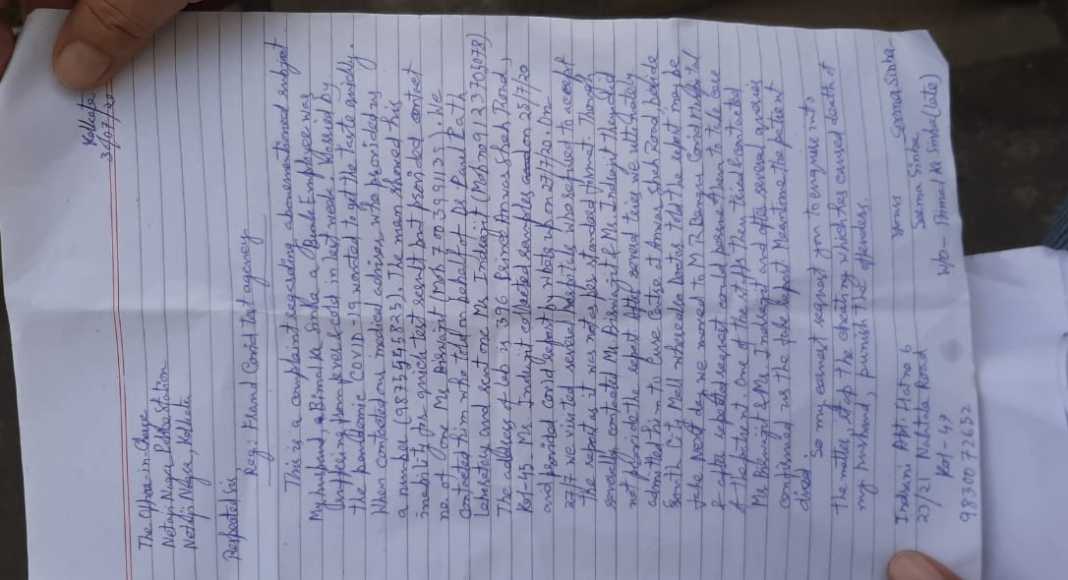 Kolkata
The Officer-in-Charge
Netaji Nagar Police Station
Netaji Nagar, Kolkata
Respected sir,
Reg: Fraud Covid Test agency
This is a complaint regarding abovementioned subject.
My husband, Bimal Ku Sinha a Bank Employee was
suffering from fever & cold in last week. Worried by
the pandemic COVID-19 wanted to get the taste quickly.
When contacted our medical adviser who provided us
a number (9835945823). The man showed his
inability for quick test result but provided contact
no of one Mr Biswajit (Mob 7003991129). We
contacted him who told on behalf of Dr Paul Path
Laboratory and sent one Mr Indrajit (Mob no 9123703078)
The address of lab is 396 Prince Anwar Shah Road,
Kol-45 Mr Indrajit collected samples on 25/7/20
and provided covid report by whatsapp on 27/7/20. On
27/7 we visited several hospitals who refused to accept
the report as it was not as per standard format. Though
severally contacted Mr Biswajit & Mr Indrajit they did
not provide the report. After several tries we ultimately
admitted him to Cure Centre at Anwar Shah Road beside
South City Mall where also Doctors told the report may be
fake. Next day we moved to M R Bangur Covid Hospital
& after repeated request could pursue them to take care
of the patient. One of the staffs then tried & contacted
Mr Biswajit & Mr Indrajit and after several queries
confirmed us the fake report. Meantime the patient
died.
So my earnest request you to enquire into
the matter, stop the cheating which has caused death of
my husband, punish the offenders.
Indrani Apt. Flat no 6
23/21 Naktala Road
Kol - 47
9830072652
Yours
Seema Sinha
Seema Sinha
W/o - Bimal Ku Sinha (Late)